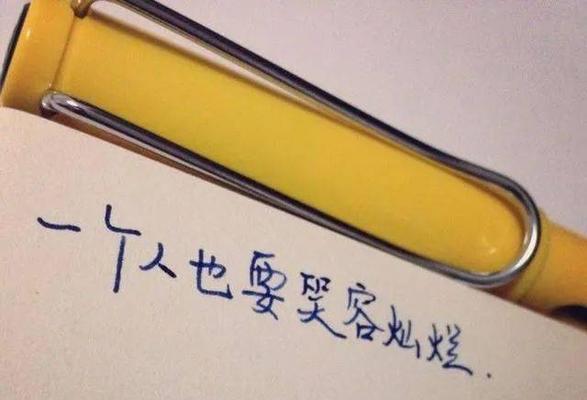 一个人也要哭容灿烂.